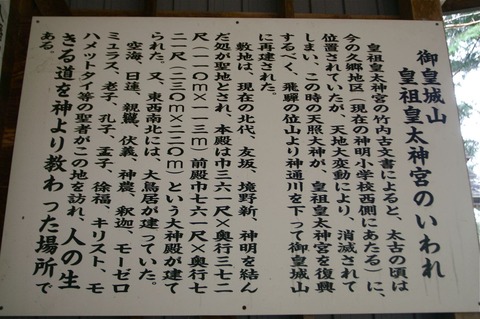 御皇城山
皇祖皇太神宮のいわれ
皇祖皇太神宮の竹内古文書によると、太古の頃は
今の久郷地区(現在の神明小学校西側にあたる)に、
位置されていたが、天地大変動により、消滅されて
しまい、この時の天照大神が、皇祖皇太神宮を復興
するべく、飛騨の位山より神通川を下って御皇城山
に再建された。
敷地は、現在の北代、友坂、境野新、神明を結ん
だ処が聖地とされ、本殿は巾三六一尺×奥行三七二
尺(一一〇m×一一三m)前殿巾七六一尺×奥行七
二一尺(二三〇m×二二〇m)という大神殿が建て
られた。又、東西南北には、大鳥居が建っていた。
空海、日蓮、親鸞、伏義、神農、釈迦、モーゼロ
ミュラス、老子、孔子、孟子、徐福、キリスト、モ
ハメットタイ等の聖者がこの地を訪れ、人の生
きる道を神より教わった場所で
ある。